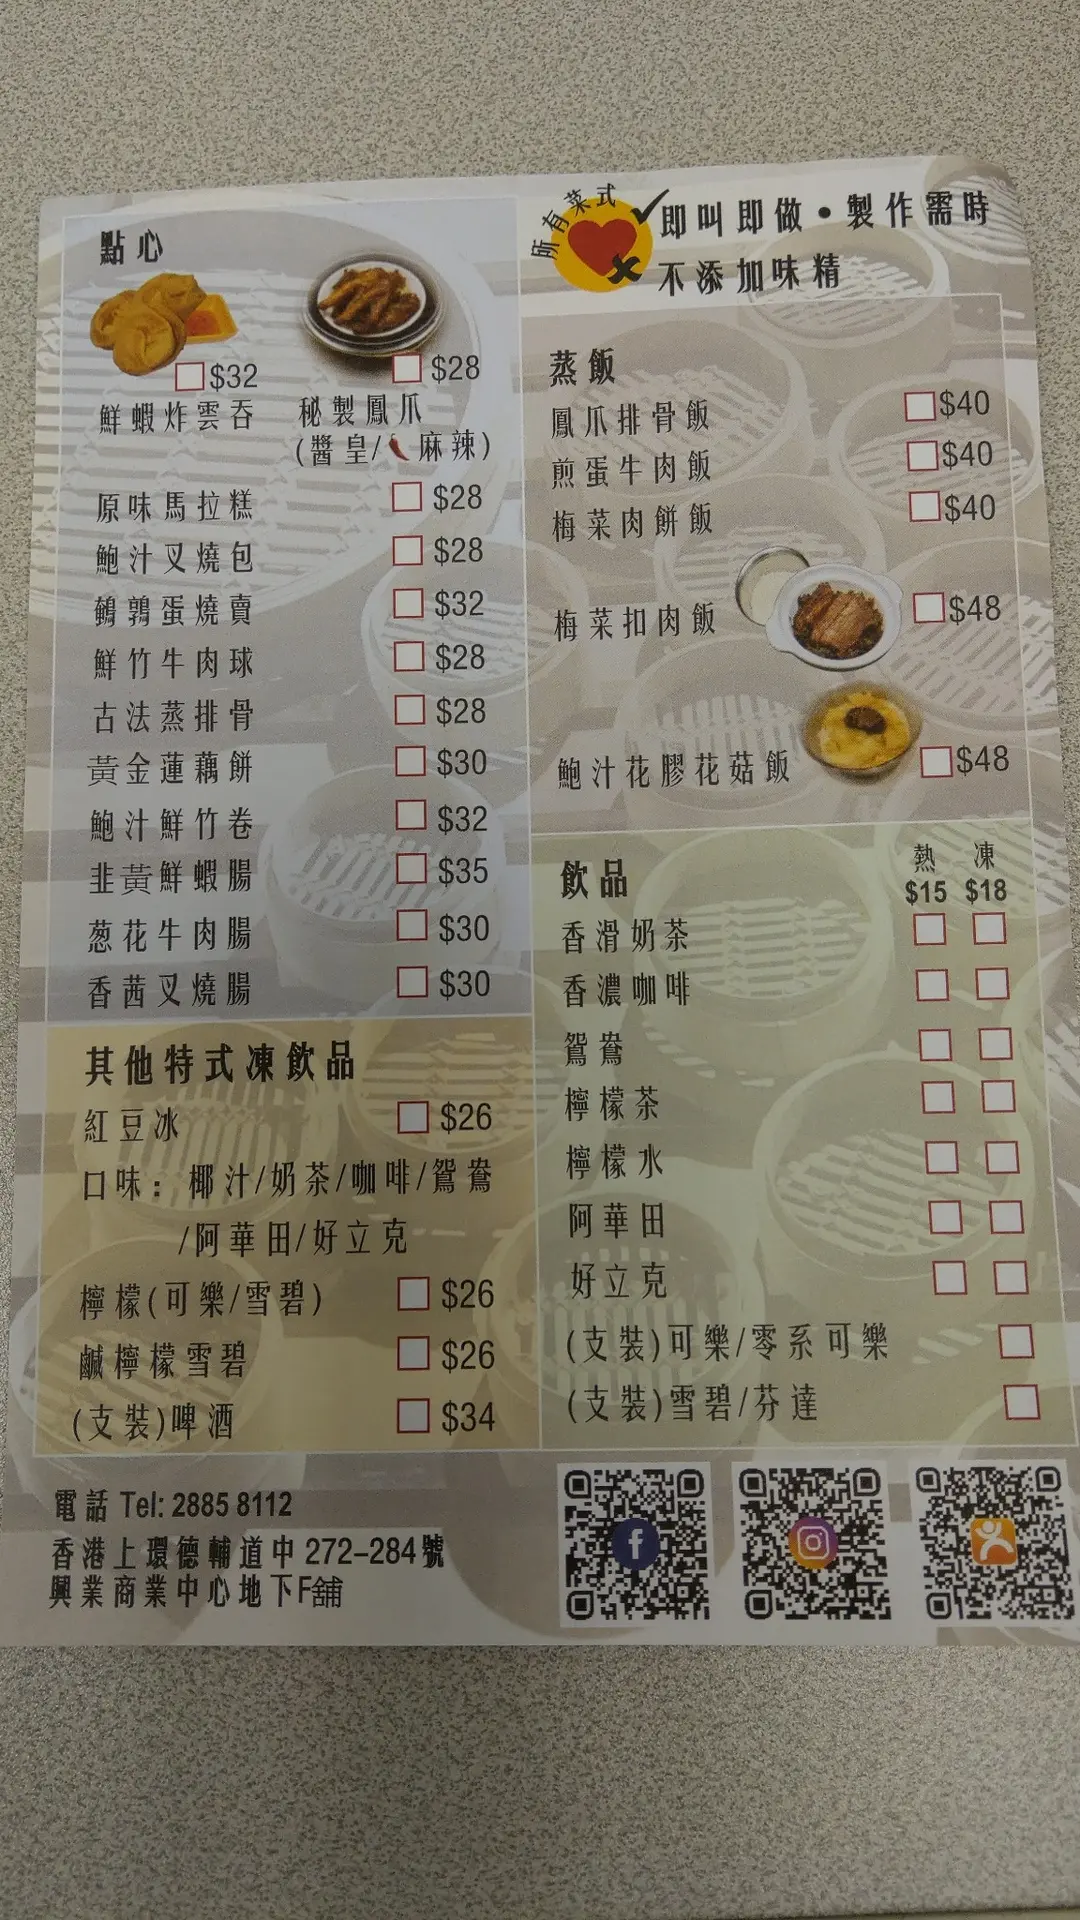 點心
$32 $28
鮮蝦炸雲吞 秘製鳳爪
(醬皇/麻辣)
原味馬拉糕 $28
鮑汁叉燒包 $28
鵪鶉蛋燒賣 $32
鮮竹牛肉球 $28
古法蒸排骨 $28
黃金蓮藕餅 $30
鮑汁鮮竹卷 $32
韭黃鮮蝦腸 $35
葱花牛肉腸 $30
香茜叉燒腸 $30
其他特式凍飲品
紅豆冰 $26
口味：椰汁/奶茶/咖啡/鴛鴦
/阿華田/好立克
檸檬(可樂/雪碧) $26
鹹檸檬雪碧 $26
(支裝)啤酒 $34
所有菜式
即叫即做•製作需時
不添加味精
蒸飯
鳳爪排骨飯 $40
煎蛋牛肉飯 $40
梅菜肉餅飯 $40
梅菜扣肉飯 $48
鮑汁花膠花菇飯 $48
飲品 熱 凍
$15 $18
香滑奶茶
香濃咖啡
鴛鴦
檸檬茶
檸檬水
阿華田
好立克
(支裝)可樂/零系可樂
(支裝)雪碧/芬達
電話 Tel: 2885 8112
香港上環德輔道中272-284號
興業商業中心地下F舖